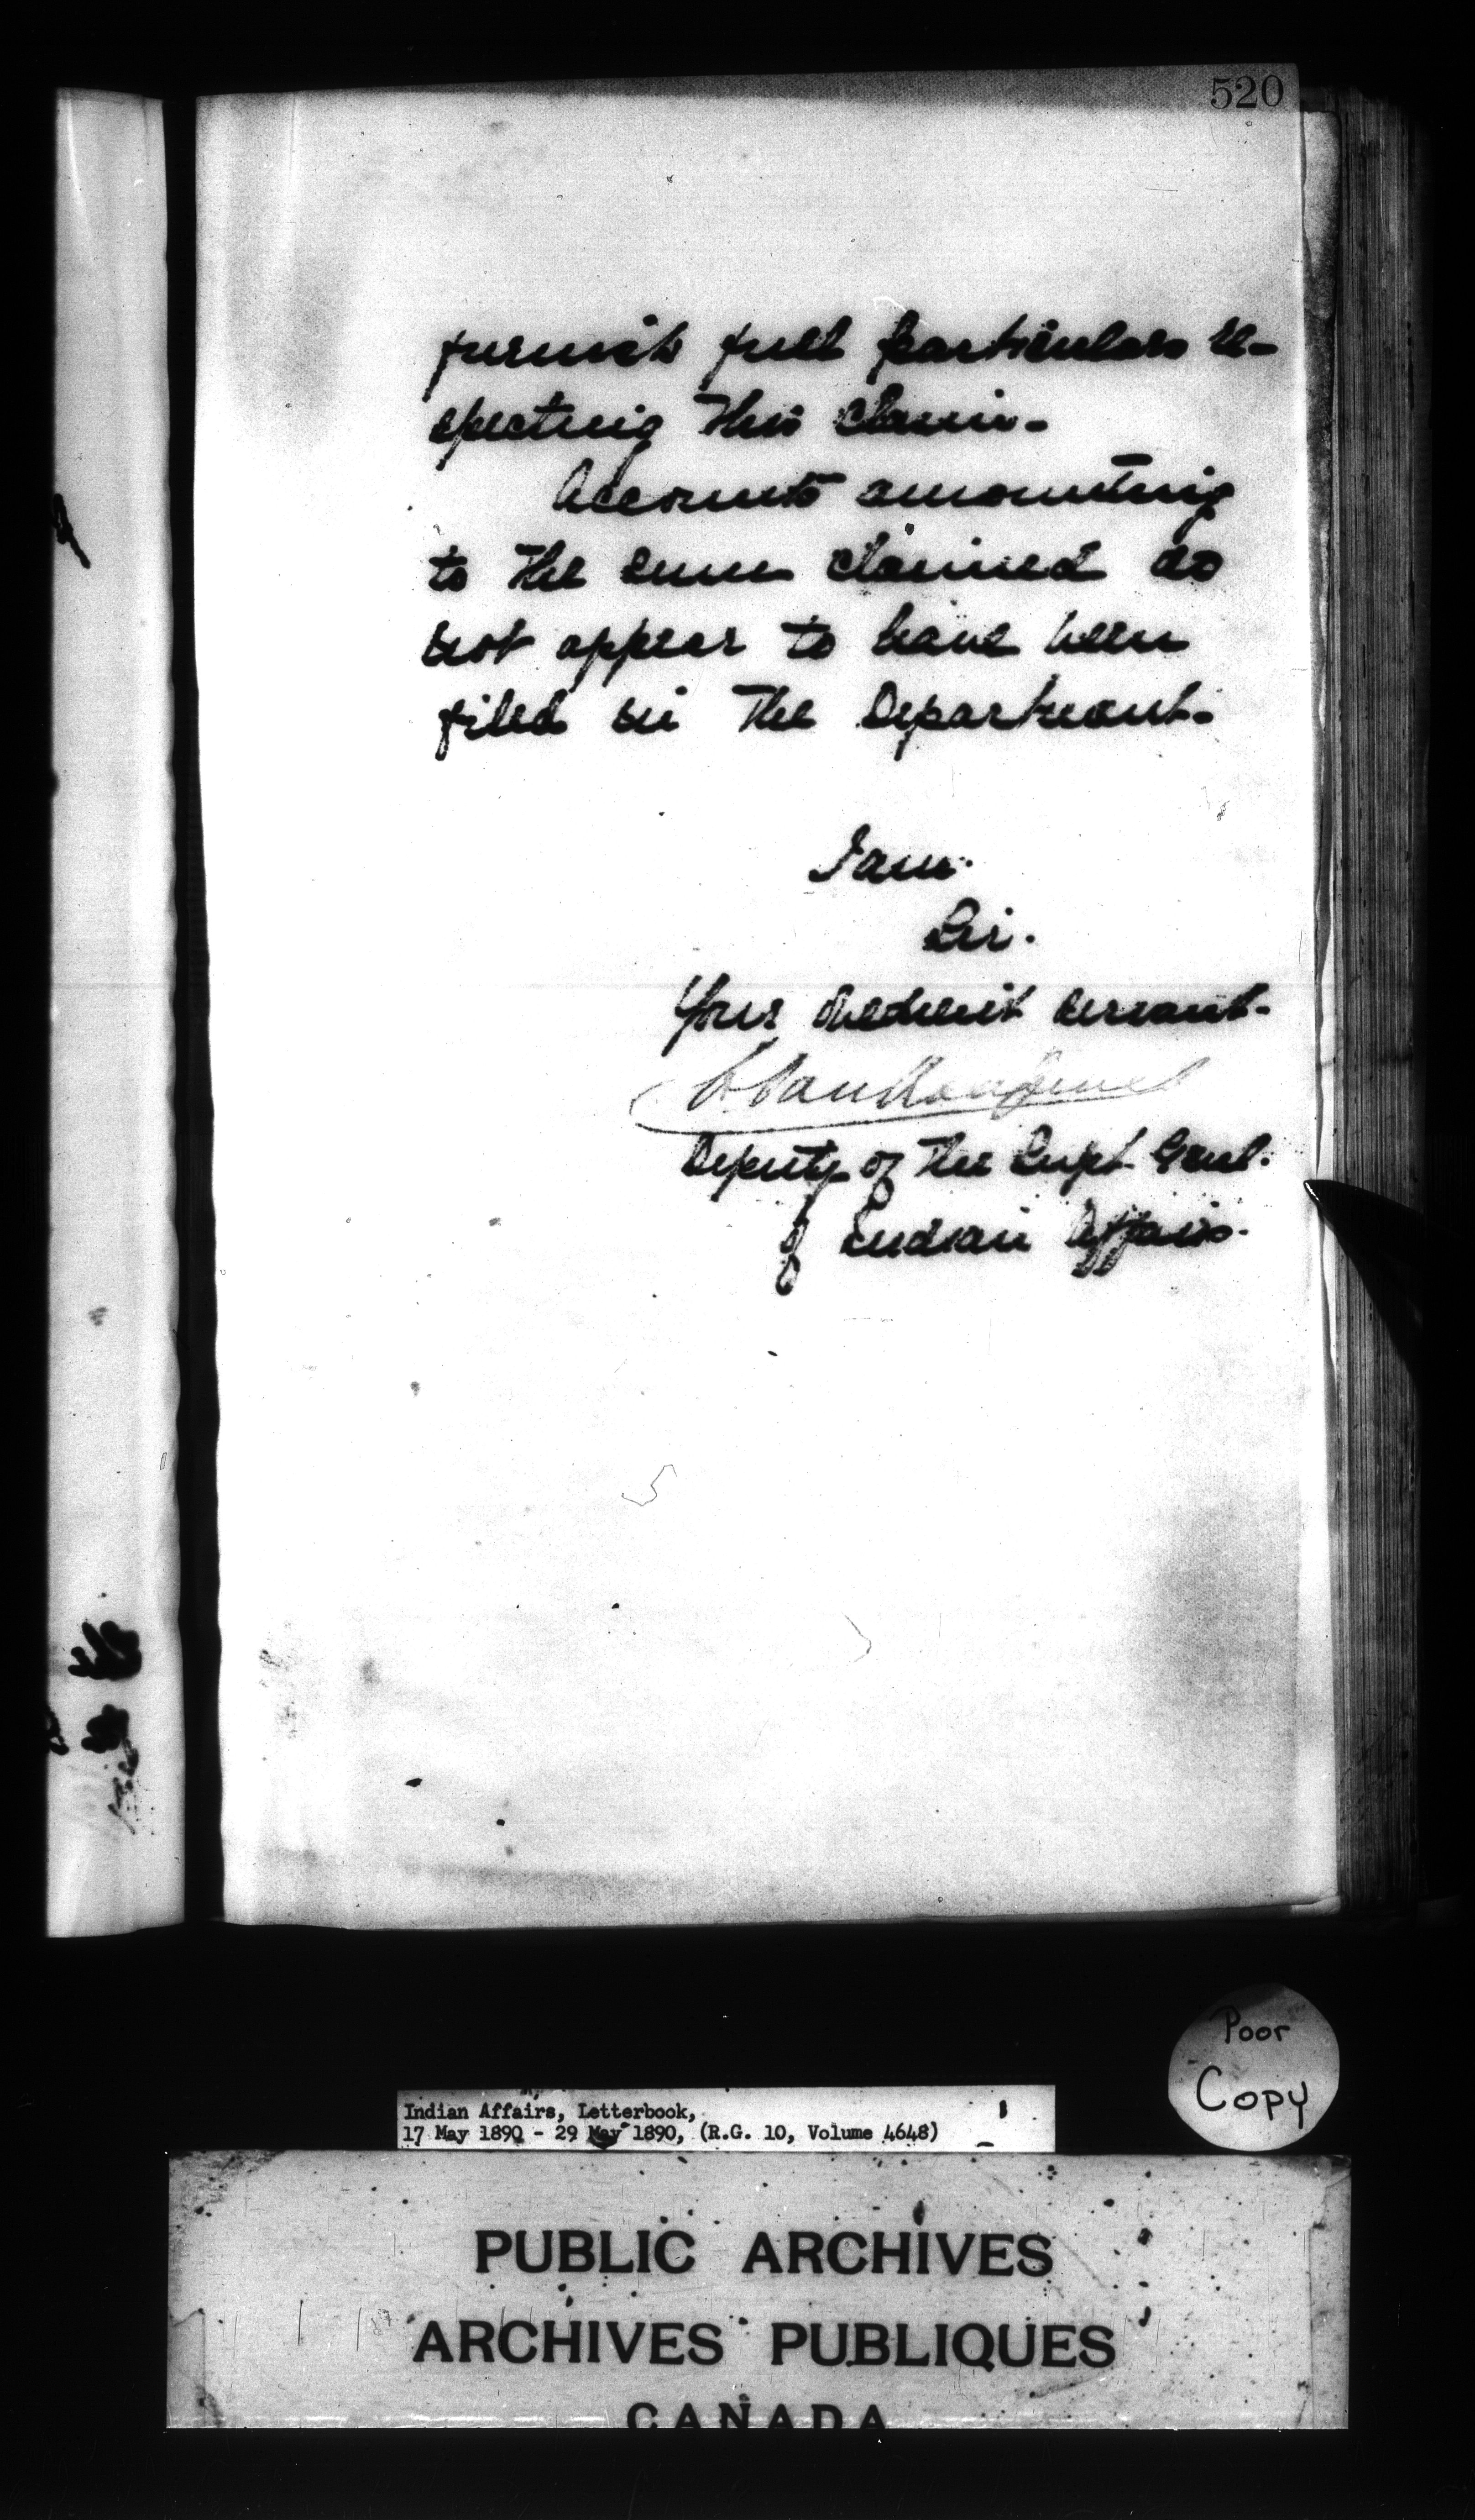 520
furnish full particulars re-
specting this claim.
Accounts amounting
to the sum claimed do
not appear to have been
filed in the Department.
I am.
Sir.
Your obedient servant.
L. Vankoughnet
Deputy of the Supt. Genl.
of Indian Affairs.
Poor
Copy
Indian Affairs, Letterbook,
17 May 1890 - 29 May 1890, (R.G. 10, Volume 4648)
PUBLIC ARCHIVES
ARCHIVES PUBLIQUES
CANADA